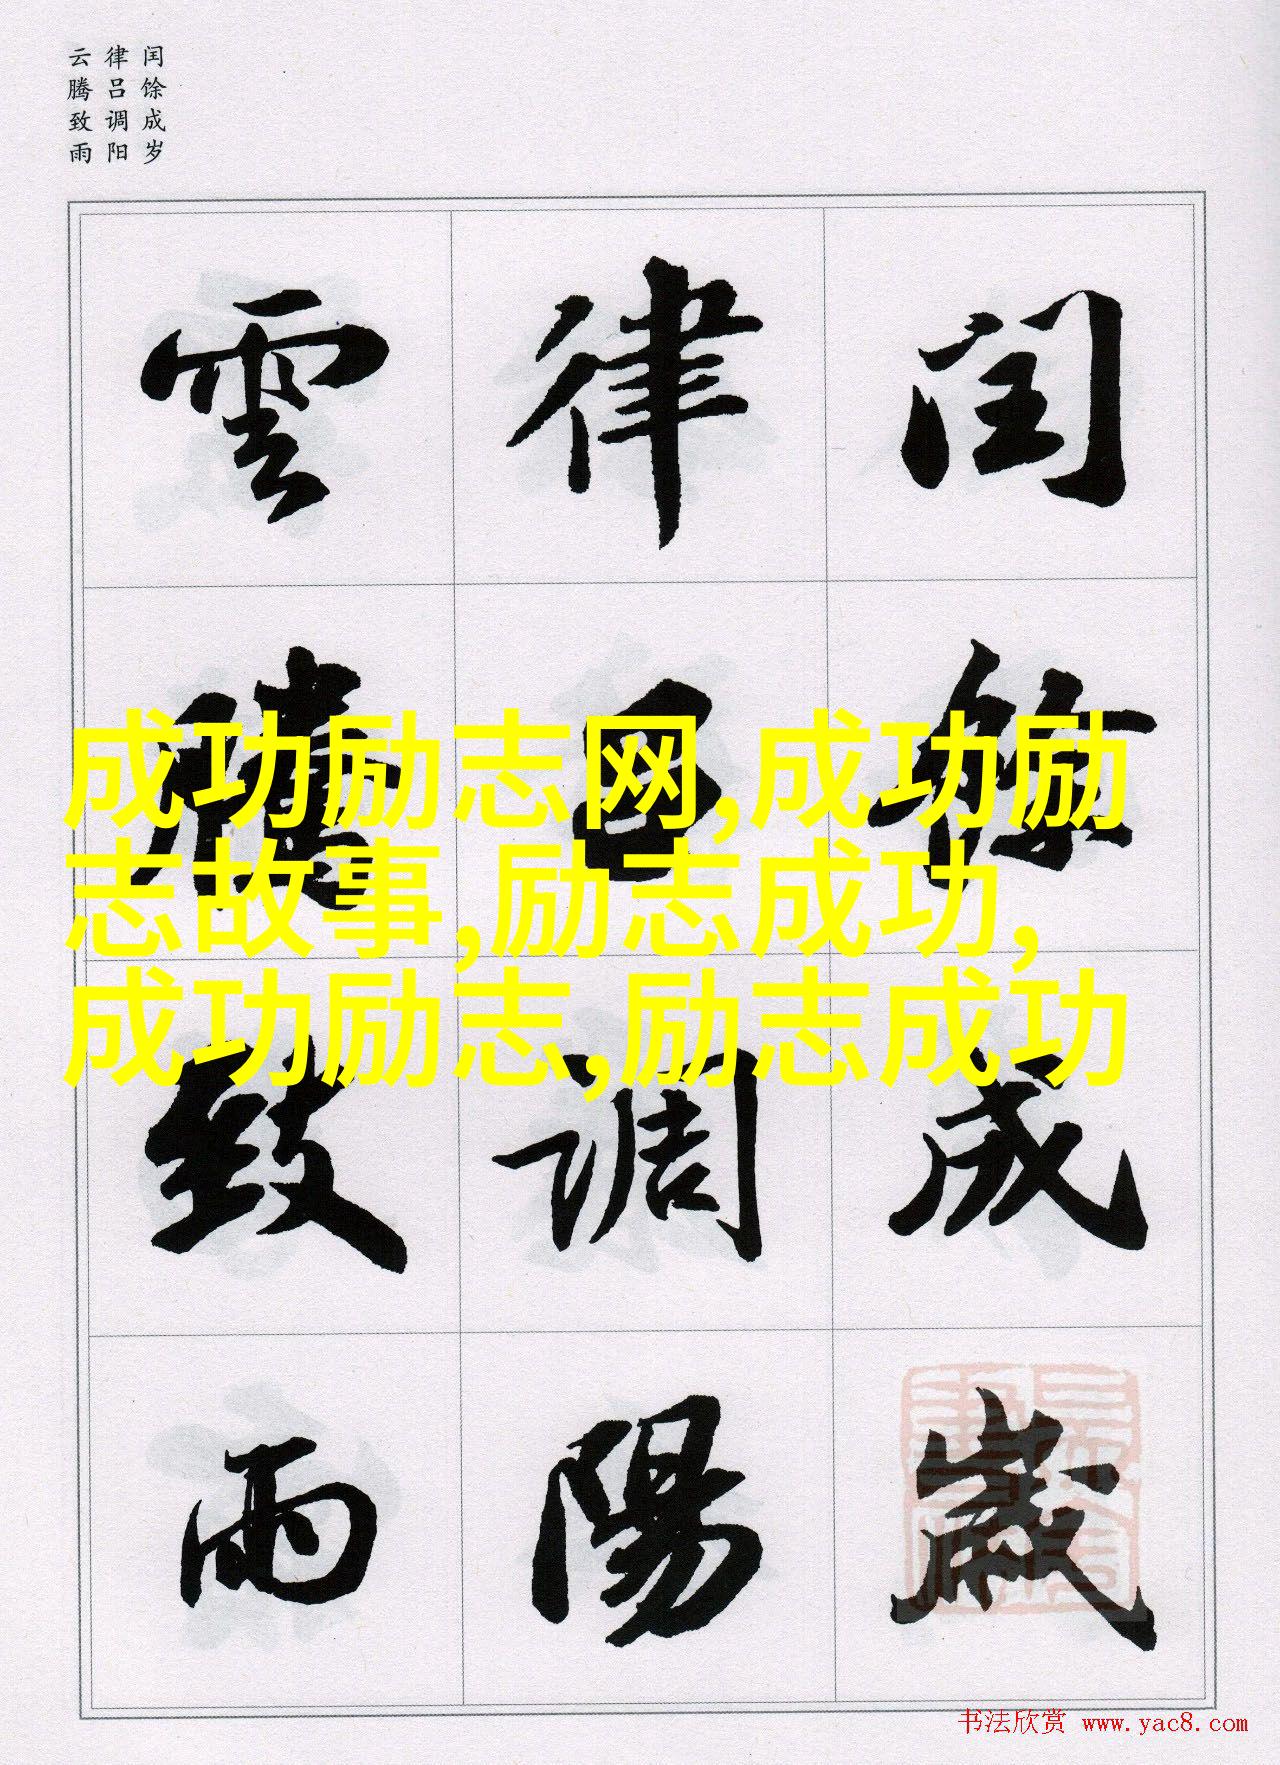 闰馀成岁
律吕调阳
云腾致雨
閏餘成歲
律吕調陽
雲騰致雨
成功励志网,成功励
志故事,励志成功,
成功励志,励志成功
书法欣赏 www.yac8.com